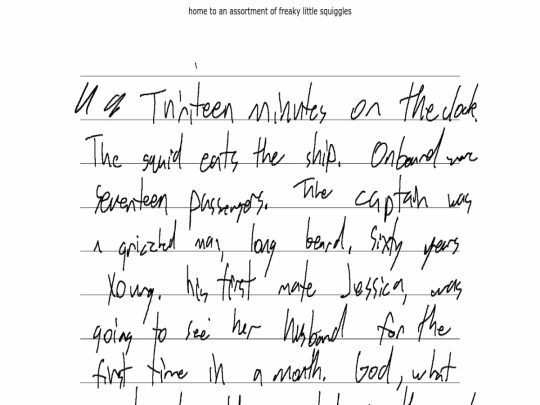 home to an assortment of freaky little squiggles
Thirteen minutes on the clock.
The squid eats the ship. Onboard were
seventeen passengers. The captain was
a grizzled man, long beard, sixty years
young. his first mate Jessica, was
going to see her husband for the
first time in a month. God, what